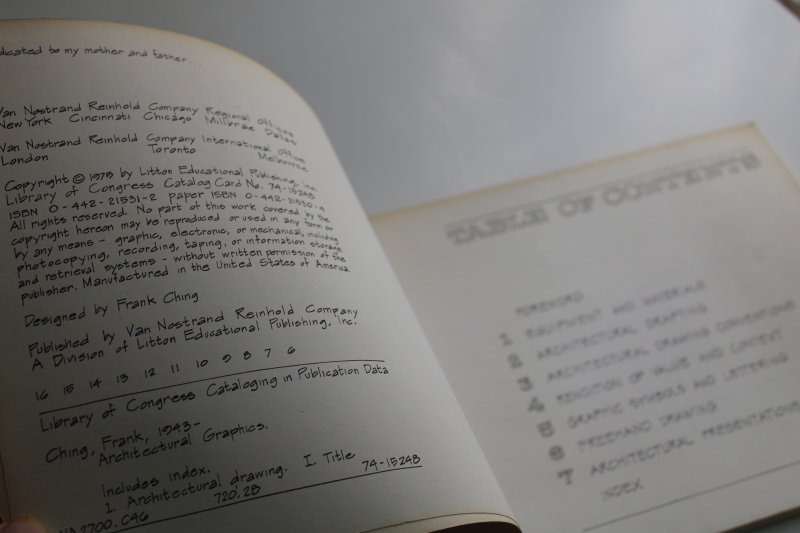 dicated to my mother and father...
Van Nostrand Reinhold Company Regional Offices
New York Cincinnati Chicago Millbrae Dallas
Van Nostrand Reinhold Company International Offices
London Toronto Melbourne
Copyright © 1975 by Litton Educational Publishing, Inc.
Library of Congress Catalog Card No. 74-15248
ISBN 0-442-21531-2 paper ISBN 0-442-21530-4
All rights reserved. No part of this work covered by the
copyright hereon may be reproduced or used in any form or
by any means - graphic, electronic, or mechanical, including
photocopying, recording, taping, or information storage
and retrieval systems - without written permission of the
publisher. Manufactured in the United States of America.
Designed by Frank Ching
Published by Van Nostrand Reinhold Company
A Division of Litton Educational Publishing, Inc.
16 15 14 13 12 11 10 9 8 7 6
Library of Congress Cataloging in Publication Data
Ching, Frank, 1943-
Architectural Graphics.
Includes index.
1. Architectural drawing. I. Title
NA2700.C46 720.28 74-15248
TABLE OF CONTENTS
FOREWORD
1 EQUIPMENT AND MATERIALS
2 ARCHITECTURAL DRAFTING
3 ARCHITECTURAL DRAWING CONVENTIONS
4 RENDITION OF VALUE AND CONTEXT
5 GRAPHIC SYMBOLS AND LETTERING
6 FREEHAND DRAWING
7 ARCHITECTURAL PRESENTATIONS
INDEX